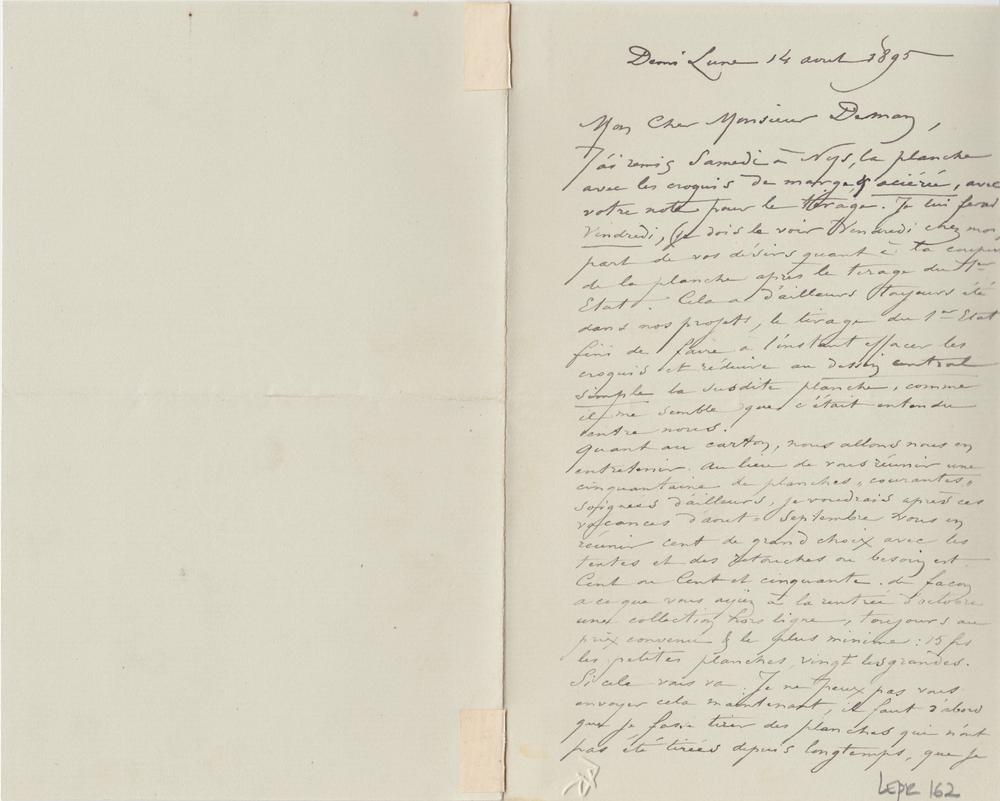 Demi Lune 14 aout 1895
Mon Cher Monsieur Deman,
J'ai remis Samedi à Nys, la planche
avec les croquis de marge, & aciérée, avec
votre note pour le tirage. Je lui ferai
Vendredi, (je dois le voir Vendredi chez moi
part de vos désirs quant à la coupure
de la planche après le tirage du 1er
Etat. Cela a d'ailleurs toujours été
dans nos projets, le tirage du 1er Etat
fini de faire à l'instant effacer les
croquis et réduire au dessin central
simple la susdite planche, comme
il me semble que c'était entendu
entre nous.
quant au carton, nous allons nous en
entretenir. Au lieu de vous réunir une
cinquantaine de planches "courantes"
soignées d'ailleurs, je voudrais après ces
vacances d'aout-Septembre vous en
réunir cent de grand choix avec les
teintes et des retouches ou besoin est.
Cent ou Cent et cinquante. de façon
a ce que vous ayiez à la rentrée d'octobre
une collection hors ligne, toujours au
prix convenu & le plus minime: 15 frs
les petites planches, vingt les grandes.
Si cela vous va. Je ne peux pas vous
envoyer cela maintenant, il faut d'abord
que je fasse tirer des planches qui n'ont
pas été tirées depuis longtemps, que je
LEPR 162